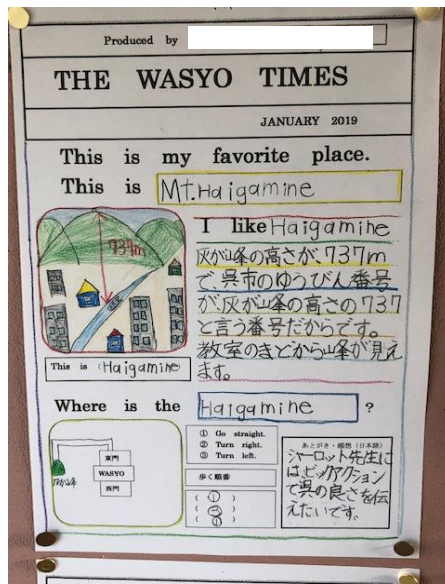 Produced by
THE WASYO TIMES
JANUARY 2019
This is my favorite place.
This is Mt.Haigamine
737m
I like Haigamine
灰が峰の高さが、737m
で、呉市のゆうびん番号
が、灰が峰の高さの737
と言う番号だからです。
教室のまどから峰が見え
ます。
This is (Haigamine
Where is the Haigamine ?
東門
WASYO
西門
灰が峰
① Go straight.
② Turn right.
③ Turn left.
歩く順番
( ① )
( ② )
( ① )
あとがき・感想（日本語）
シャーロット先生に
はビックアクション
で呉の良さを伝
えたいです。